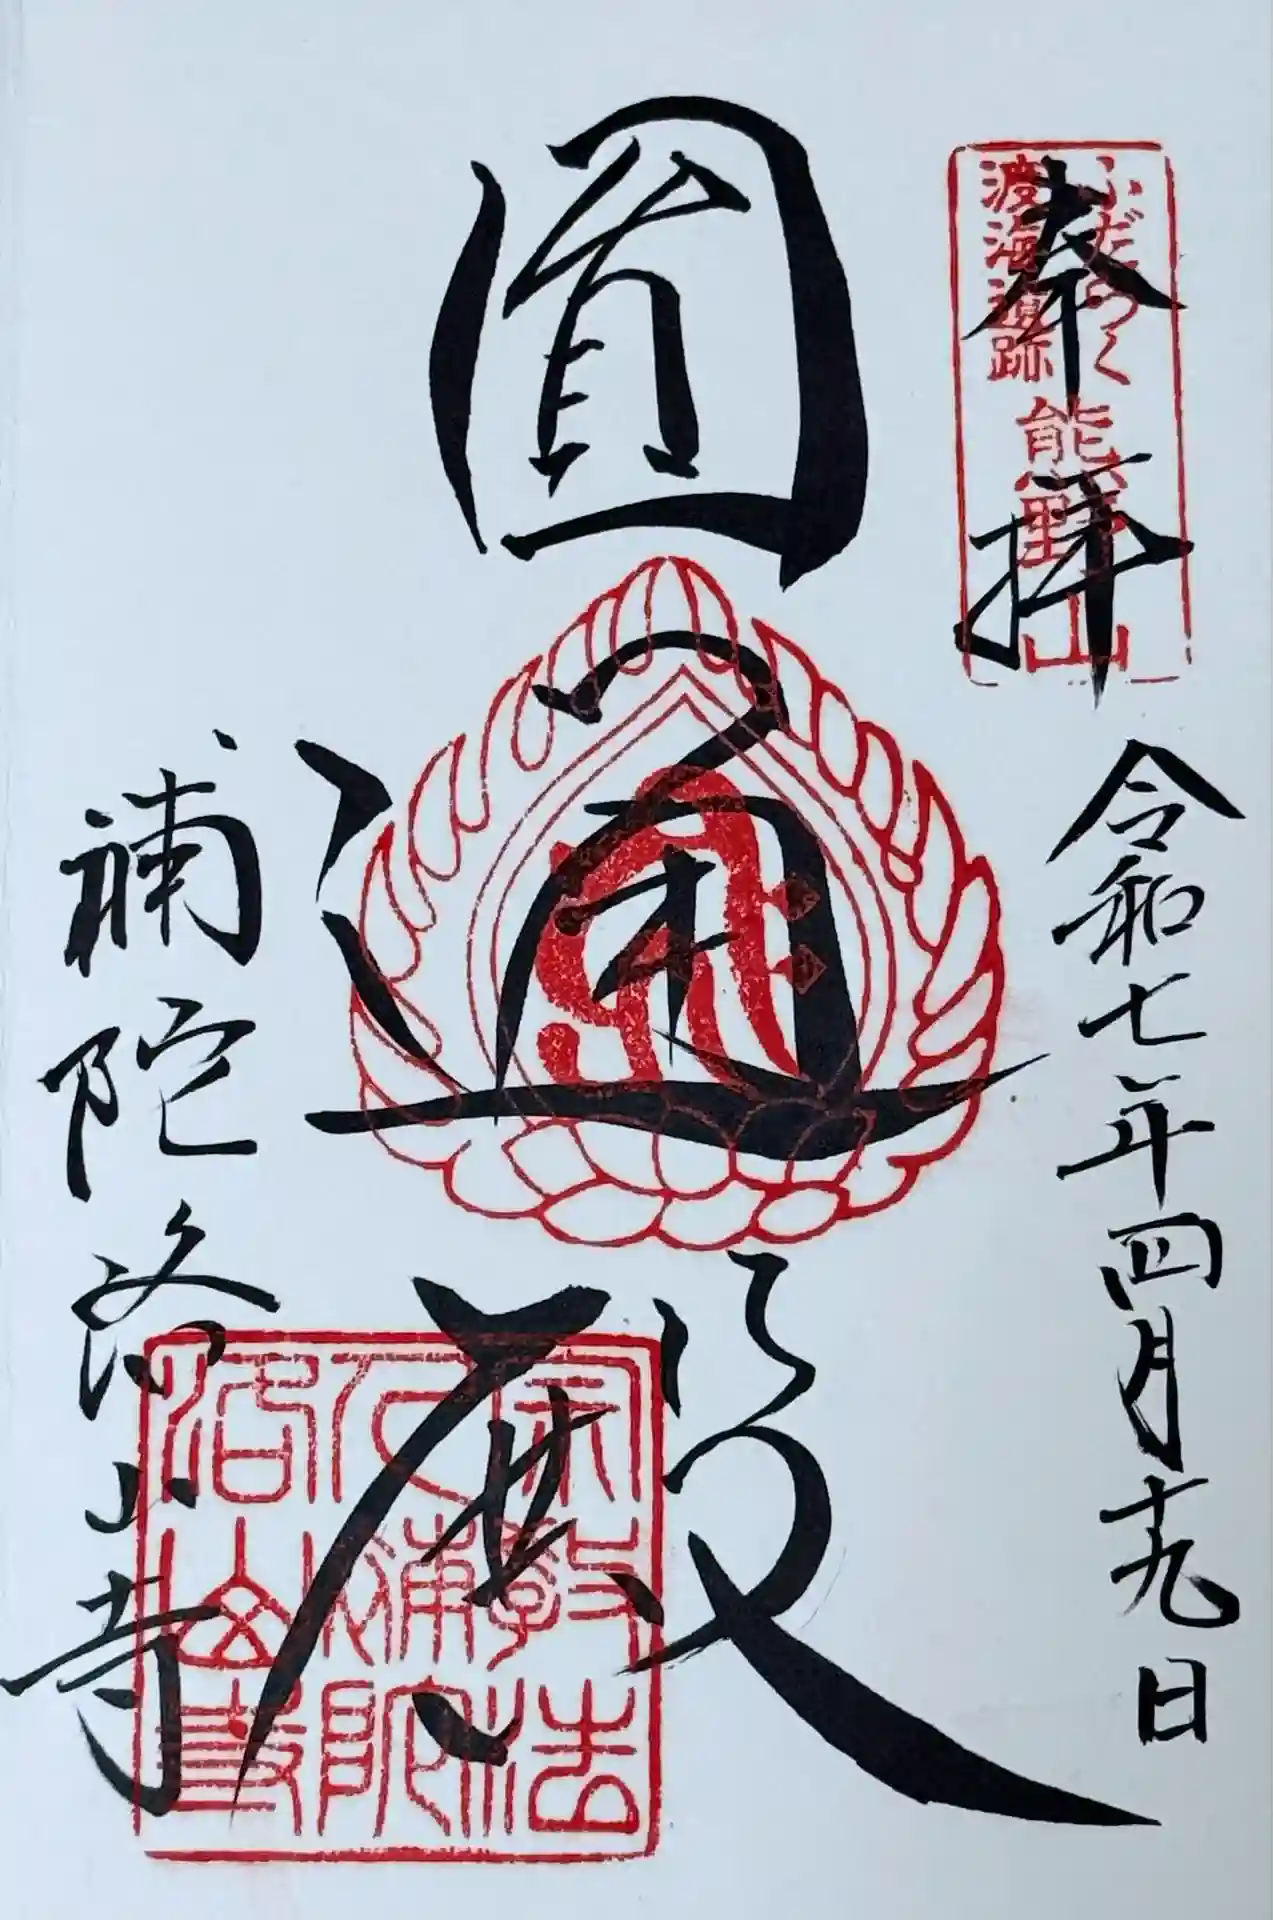 奉拝
ふだらく
渡海遺跡
熊野山
令和七年四月十九日
圓通殿
補陀洛山寺
宗教法
人補陀
洛山寺